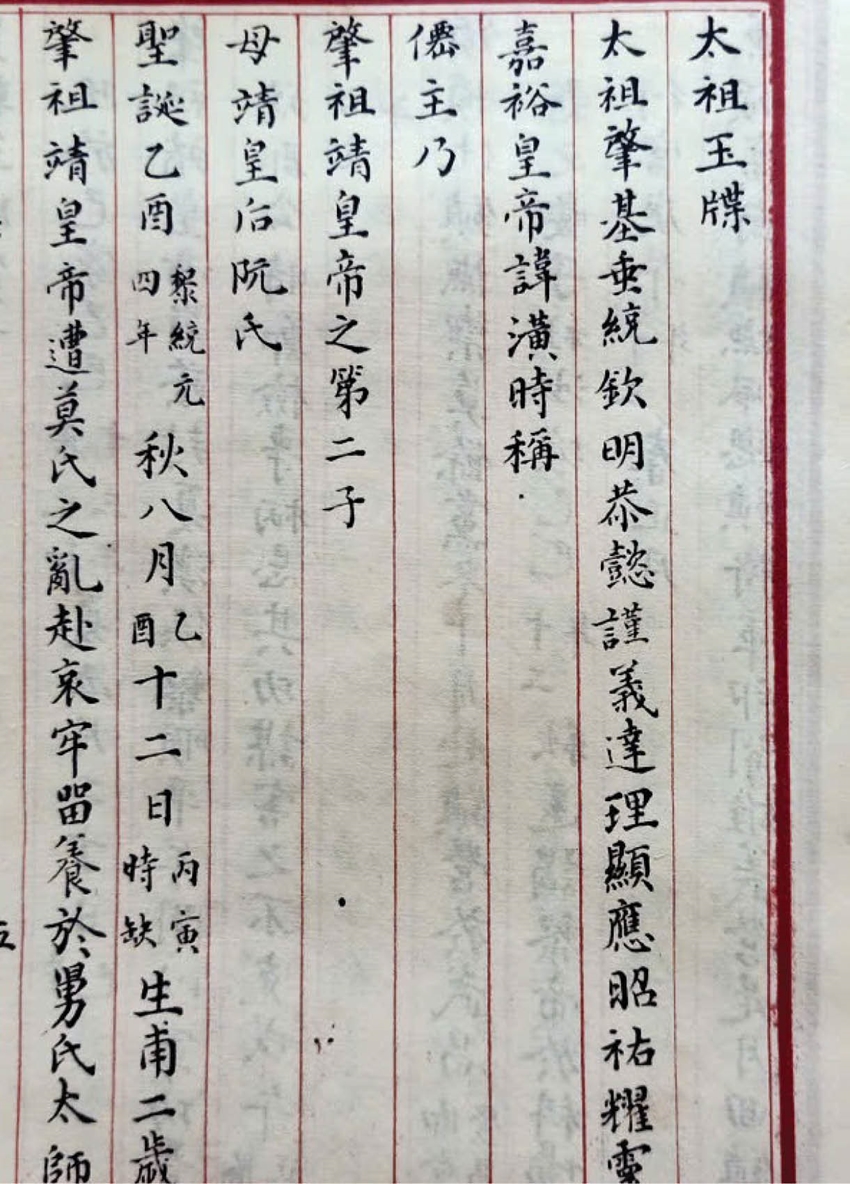 太祖玉牒
太祖肇基垂統欽明恭懿謹義達理顯應昭祐耀靈
嘉裕皇帝諱潢時稱
僊主乃
肇祖靖皇帝之第二子
母靖皇后阮氏
聖誕乙酉黎統元四年秋八月乙酉十二日丙寅時缺生甫二歲
肇祖靖皇帝遭莫氏之亂赴哀牢留養於舅氏太師